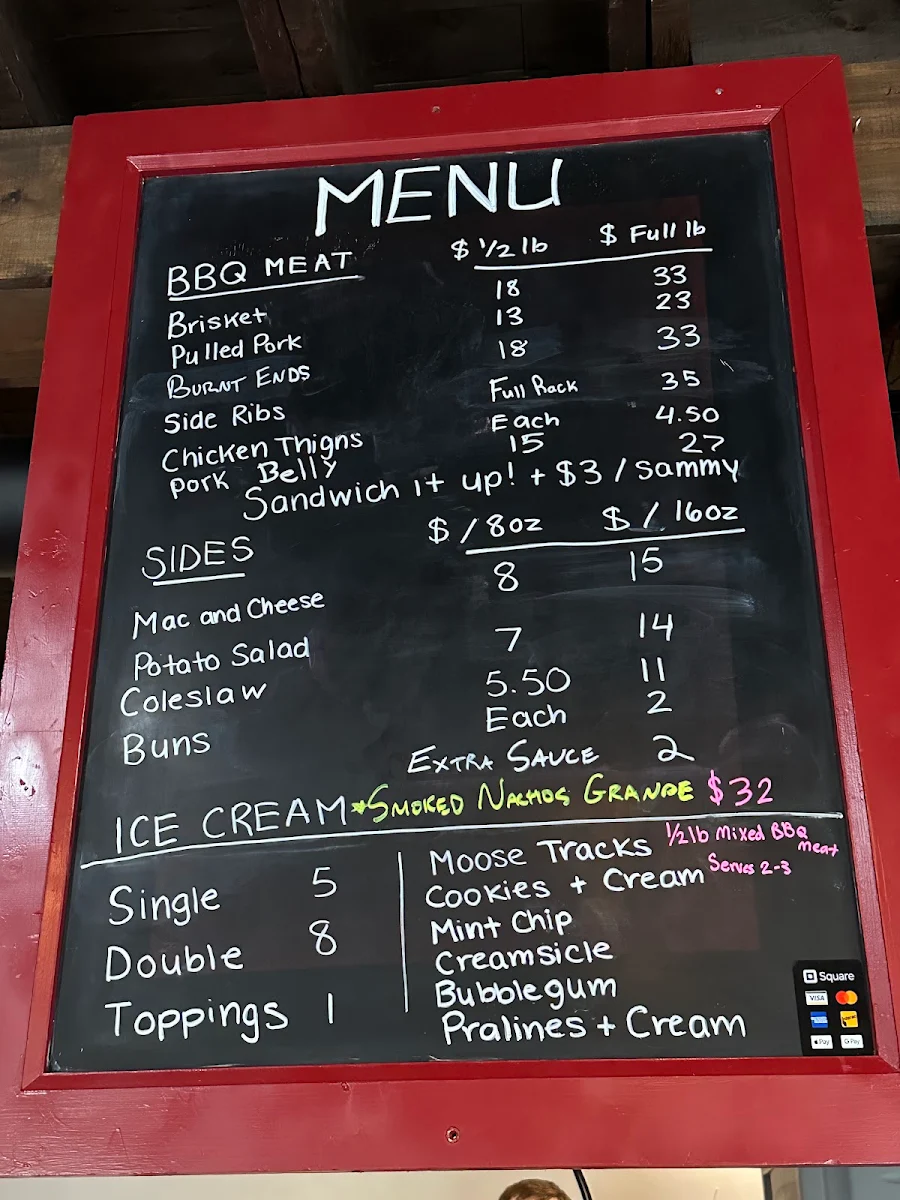 MENU
BBQ MEAT $ 1/2 lb $ Full lb
Brisket 18 33
Pulled Pork 13 23
BURNT ENDS 18 33
Side Ribs Full Rack 35
Chicken Thighs Each 4.50
Pork Belly 15 27
Sandwich it up! + $3 / Sammy
SIDES $ / 8oz $ / 16oz
Mac and Cheese 8 15
Potato Salad 7 14
Coleslaw 5.50 11
Buns Each 2
EXTRA SAUCE 2
ICE CREAM *SMOKED NACHOS GRANDE $32
1/2 lb Mixed BBQ meat
Serves 2-3
Single 5
Double 8
Toppings 1
Moose Tracks
Cookies + Cream
Mint Chip
Creamsicle
Bubblegum
Pralines + Cream
Square
VISA
Pay
G Pay